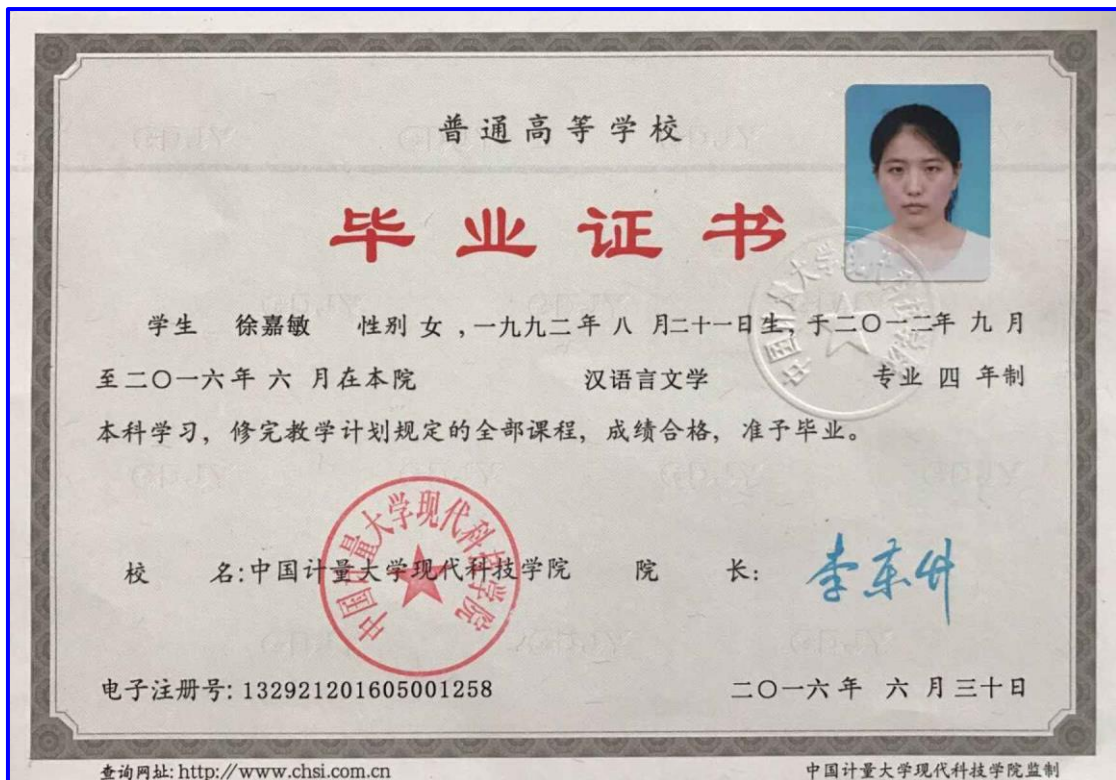 普通高等学校
毕业证书
学生 徐嘉敏 性别 女 ,一九九二年 八 月二十一日生, 于二〇一二年 九 月
至二〇一六年 六 月在本院 汉语言文学 专业 四 年制
本科学习, 修完教学计划规定的全部课程, 成绩合格, 准予毕业。
中国计量大学现代科技学院
校 名:中国计量大学现代科技学院 院 长: 李东升
中国计量大学现代科技学院
电子注册号: 132921201605001258 二〇一六年 六 月三十日
查询网址: http://www.chsi.com.cn 中国计量大学现代科技学院监制